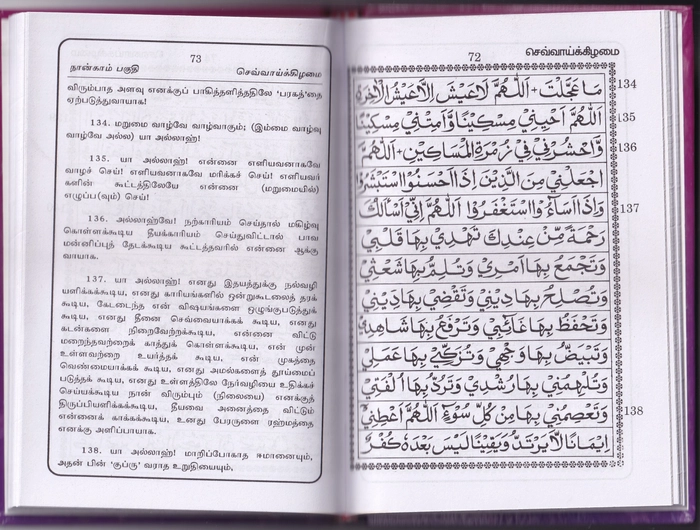 72 செவ்வாய்க்கிழமை
مَا عَجَّلْتَ + اَللّٰهُمَّ لَا عَيْشَ اِلَّا عَيْشُ الْاٰخِرَةِ 134
اَللّٰهُمَّ اَحْيِنِيْ مِسْكِيْنًا وَّاَمِتْنِيْ مِسْكِيْنًا 135
وَّاحْشُرْنِيْ فِيْ زُمْرَةِ الْمَسَاكِيْنِ + اَللّٰهُمَّ 136
اجْعَلْنِيْ مِنَ الَّذِيْنَ اِذَا اَحْسَنُوا اسْتَبْشَرُوْا
وَاِذَا اَسَاءُوا اسْتَغْفَرُوْا اَللّٰهُمَّ اِنِّيْ اَسْاَلُكَ 137
رَحْمَةً مِّنْ عِنْدِكَ تَهْدِيْ بِهَا قَلْبِيْ
وَتَجْمَعُ بِهَا اَمْرِيْ وَتَلُمُّ بِهَا شَعَثِيْ
وَتُصْلِحُ بِهَا دِيْنِيْ وَتَقْضِيْ بِهَا دَيْنِيْ
وَتَحْفَظُ بِهَا غَائِبِيْ وَتَرْفَعُ بِهَا شَاهِدِيْ
وَتُبَيِّضُ بِهَا وَجْهِيْ وَتُزَكِّيْ بِهَا عَمَلِيْ
وَتُلْهِمُنِيْ بِهَا رُشْدِيْ وَتَرُدُّ بِهَا اُلْفَتِيْ
وَتَعْصِمُنِيْ بِهَا مِنْ كُلِّ سُوْءٍ اَللّٰهُمَّ اَعْطِنِيْ 138
اِيْمَانًا لَّا يَرْتَدُّ وَيَقِيْنًا لَيْسَ بَعْدَهٗ كُفْرٌ
73
நான்காம் பகுதி செவ்வாய்க்கிழமை
விரும்பாத அளவு எனக்குப் பாகித்தளித்ததிலே 'பரகத்'தை
ஏற்படுத்துவாயாக!
134. மறுமை வாழ்வே வாழ்வாகும்; (இம்மை வாழ்வு
வாழ்வே அல்ல) யா அல்லாஹ்!
135. யா அல்லாஹ்! என்னை எளியவனாகவே
வாழச் செய்! எளியவனாகவே மரிக்கச் செய்! எளியவர்
களின் கூட்டத்திலேயே என்னை (மறுமையில்)
எழுப்ப(வும்) செய்!
136. அல்லாஹ்வே! நற்காரியம் செய்தால் மகிழ்வு
கொள்ளக்கூடிய தீயக்காரியம் செய்துவிட்டால் பாவ
மன்னிப்புத் தேடக்கூடிய கூட்டத்தவரில் என்னை ஆக்கு
வாயாக.
137. யா அல்லாஹ்! எனது இதயத்துக்கு நல்வழி
யளிக்கக்கூடிய, எனது காரியங்களில் ஒன்றுகூடலைத் தரக்
கூடிய, கேடடைந்த என் விஷயங்களை ஒழுங்குபடுத்துக்
கூடிய, எனது தீனை செவ்வையாக்கக் கூடிய, எனது
கடன்களை நிறைவேற்றக்கூடிய, என்னை விட்டு
மறைந்தவற்றைக் காத்துக் கொள்ளக்கூடிய, என் முன்
உள்ளவற்றை உயர்த்தக் கூடிய, என் முகத்தை
வெண்மையாக்கக் கூடிய, எனது அமல்களைத் தூய்மைப்
படுத்தக் கூடிய, எனது உள்ளத்திலே நேர்வழியை உதிக்கச்
செய்யக்கூடிய நான் விரும்பும் (நிலையை) எனக்குத்
திருப்பியளிக்கக்கூடிய, தீயவை அனைத்தை விட்டும்
என்னைக் காக்கக்கூடிய, உனது பேரருளை ரஹ்மத்தை
எனக்கு அளிப்பாயாக.
138. யா அல்லாஹ்! மாறிப்போகாத ஈமானையும்,
அதன் பின் 'குப்ரு' வராத உறுதியையும்,